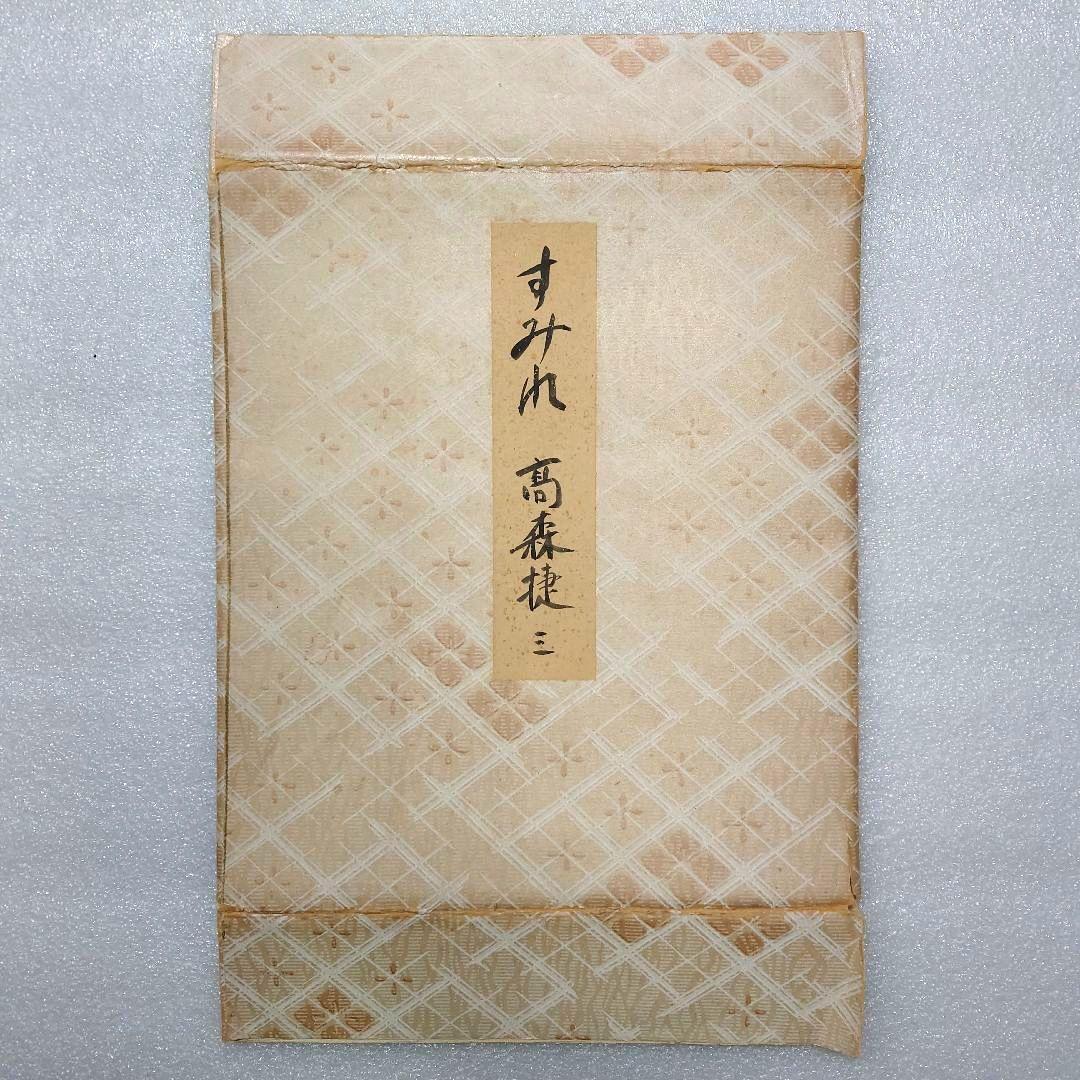 すみれ 髙森捷三